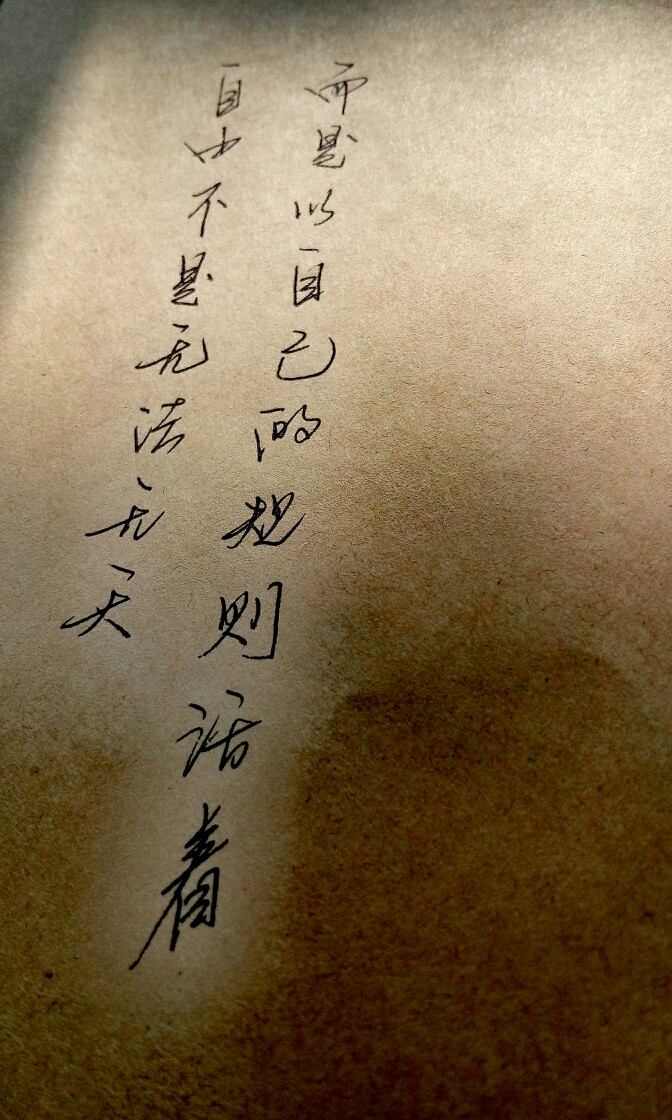 自由不是无法无天
而是以自己的规则话着